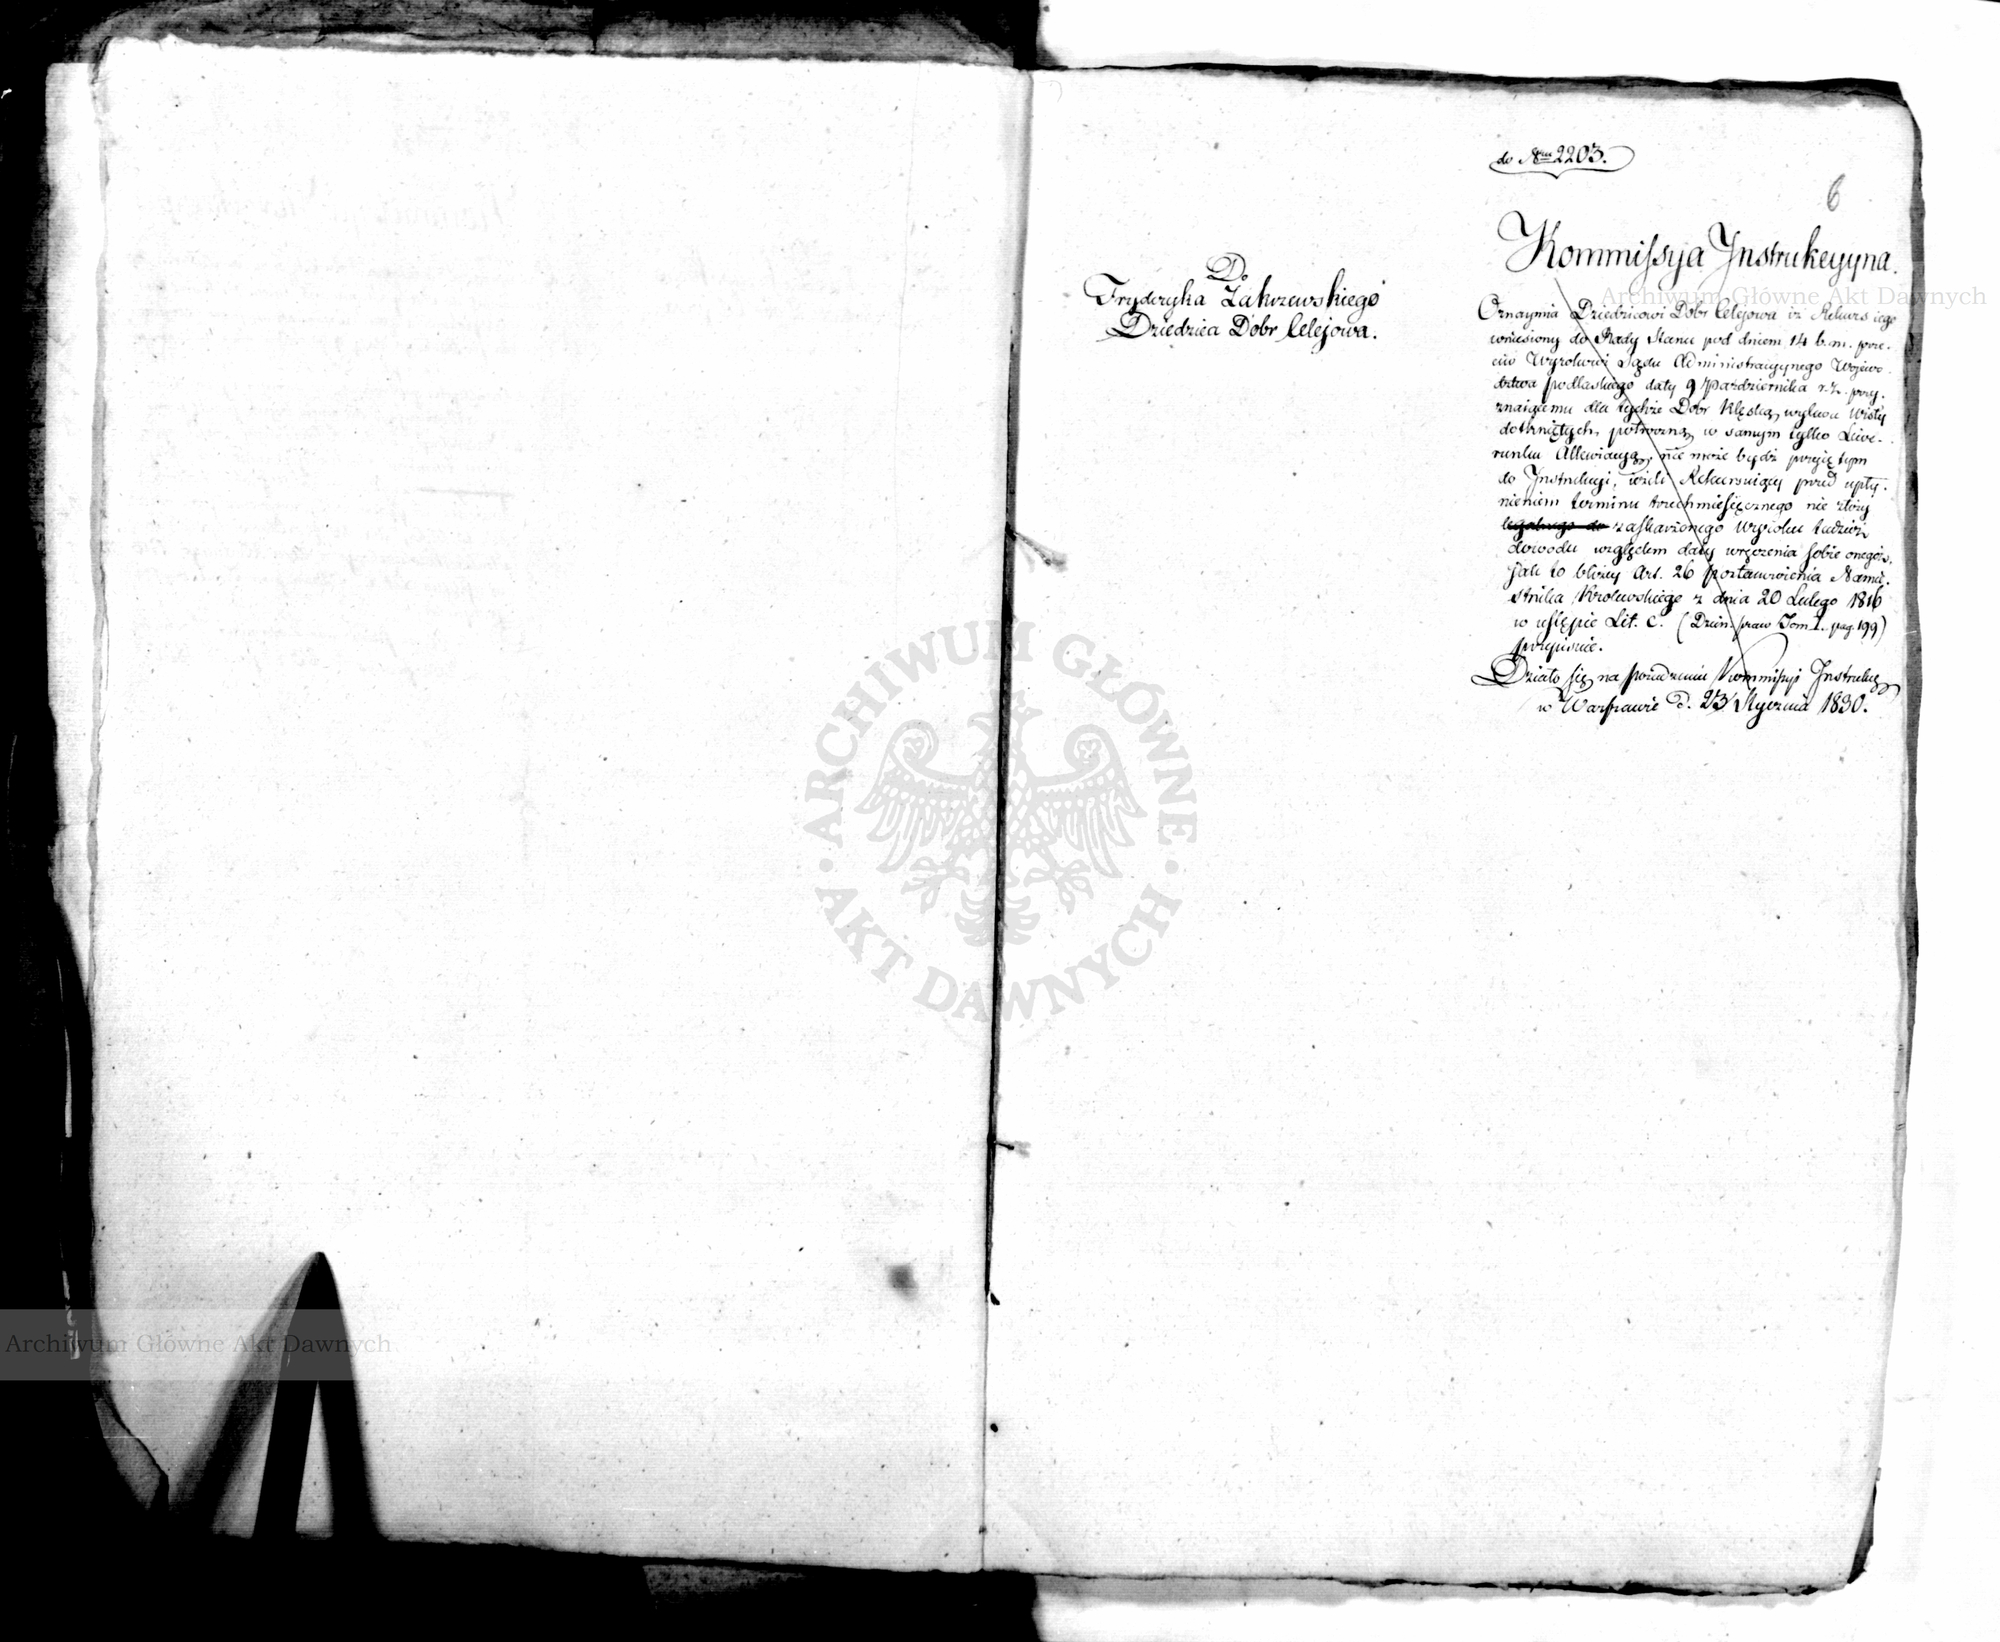 do Nru 2203.
6
Kommissya Instrukcyyna.
Do
Fryderyka Zakrzewskiego
Dziedzica Dóbr Celejowa.
Oznaymia Dziedzicowi Dóbr Celejowa iż Rekurs iego
wniesiony do Rady Stanu pod dniem 14 b.m. prze-
ciw Wyrokowi Sądu Administracyjnego Wojewó-
dztwa podlaskiego daty 9 Października r.z. przy-
znaiącemu dla tychże Dóbr Klęską wylewu Wisły
dotkniętych, półroczną w samym tylko Liwe-
runku Allewiacyą, nie może bydź przyiętym
do Instrukcyi, ieżeli Rekursuiący przed upły-
nieniem terminu trzechmiesięcznego nie złoży
legalnego do zaskarżonego Wyroku tudzież
dowodu względem daty wręczenia sobie onegóż,
Jak to bliżey Art. 26 Postanowienia Namie-
stnika Królewskiego z dnia 20 Lutego 1816
w ustępie Lit. C. (Dzien. praw Tom I. pag. 199)
przepisuie.
Działo się na posiedzeniu Kommissyi Instrukcy
w Warszawie d. 23 Stycznia 1830.
ARCHIWUM GŁÓWNE AKT DAWNYCH
Archiwum Główne Akt Dawnych
Archiwum Główne Akt Dawnych